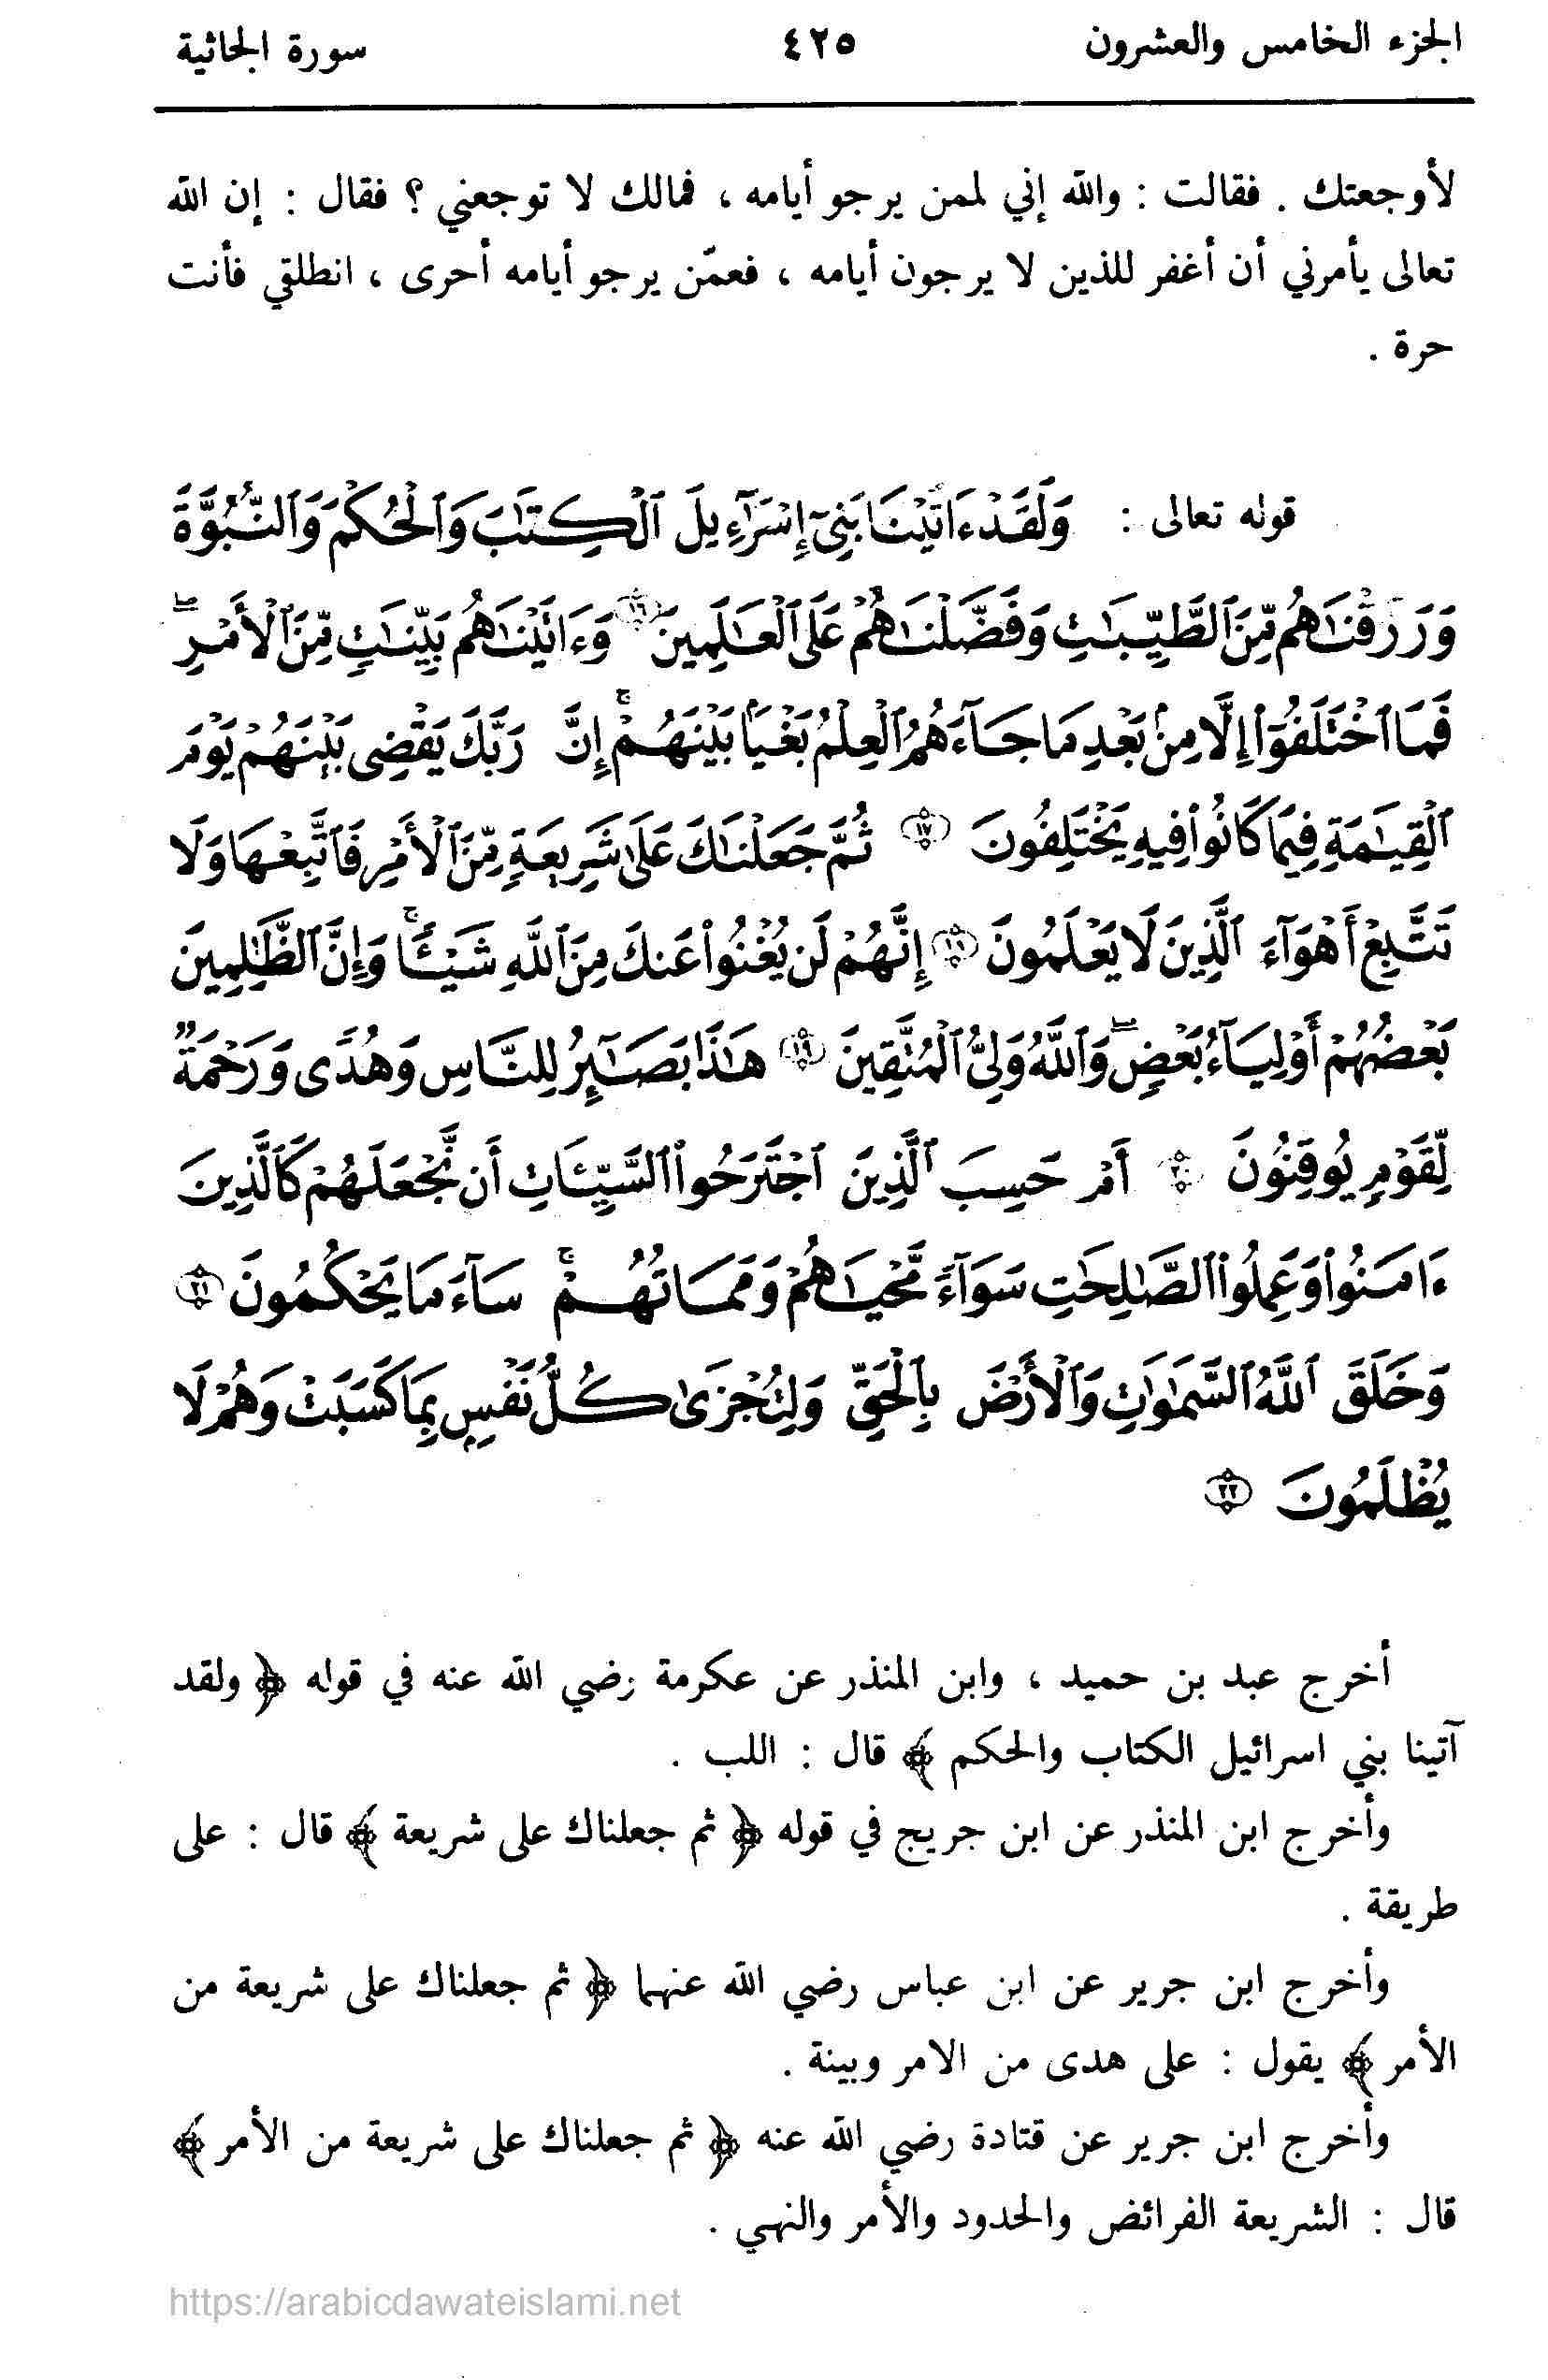 الجزء الخامس والعشرون ٤٢٥ سورة الجاثية
لأوجعتك . فقالت : والله إني لممن يرجو أيامه ، فمالك لا توجعني ؟ فقال : إن الله
تعالى يأمرني أن أغفر للذين لا يرجون أيامه ، فعمّن يرجو أيامه أحرى ، انطلقي فأنت
حرة .
قوله تعالى : وَلَقَدْ ءَاتَيْنَا بَنِىٓ إِسْرَٰٓءِيلَ ٱلْكِتَٰبَ وَٱلْحُكْمَ وَٱلنُّبُوَّةَ
وَرَزَقْنَٰهُم مِّنَ ٱلطَّيِّبَٰتِ وَفَضَّلْنَٰهُمْ عَلَى ٱلْعَٰلَمِينَ ١٦ وَءَاتَيْنَٰهُم بَيِّنَٰتٍ مِّنَ ٱلْأَمْرِ ۖ
فَمَا ٱخْتَلَفُوٓا۟ إِلَّا مِنۢ بَعْدِ مَا جَآءَهُمُ ٱلْعِلْمُ بَغْيًۢا بَيْنَهُمْ ۚ إِنَّ رَبَّكَ يَقْضِى بَيْنَهُمْ يَوْمَ
ٱلْقِيَٰمَةِ فِيمَا كَانُوا۟ فِيهِ يَخْتَلِفُونَ ١٧ ثُمَّ جَعَلْنَٰكَ عَلَىٰ شَرِيعَةٍ مِّنَ ٱلْأَمْرِ فَٱتَّبِعْهَا وَلَا
تَتَّبِعْ أَهْوَآءَ ٱلَّذِينَ لَا يَعْلَمُونَ ١٨ إِنَّهُمْ لَن يُغْنُوا۟ عَنكَ مِنَ ٱللَّهِ شَيْـًٔا ۚ وَإِنَّ ٱلظَّٰلِمِينَ
بَعْضُهُمْ أَوْلِيَآءُ بَعْضٍ ۖ وَٱللَّهُ وَلِىُّ ٱلْمُتَّقِينَ ١٩ هَٰذَا بَصَٰٓئِرُ لِلنَّاسِ وَهُدًى وَرَحْمَةٌ
لِّقَوْمٍ يُوقِنُونَ ٢٠ أَمْ حَسِبَ ٱلَّذِينَ ٱجْتَرَحُوا۟ ٱلسَّيِّـَٔاتِ أَن نَّجْعَلَهُمْ كَٱلَّذِينَ
ءَامَنُوا۟ وَعَمِلُوا۟ ٱلصَّٰلِحَٰتِ سَوَآءً مَّحْيَاهُمْ وَمَمَاتُهُمْ ۚ سَآءَ مَا يَحْكُمُونَ ٢١
وَخَلَقَ ٱللَّهُ ٱلسَّمَٰوَٰتِ وَٱلْأَرْضَ بِٱلْحَقِّ وَلِتُجْزَىٰ كُلُّ نَفْسٍۭ بِمَا كَسَبَتْ وَهُمْ لَا
يُظْلَمُونَ ٢٢
أخرج عبد بن حميد ، وابن المنذر عن عكرمة رضي الله عنه في قوله ﴿ ولقد
آتينا بني اسرائيل الكتاب والحكم ﴾ قال : اللب .
وأخرج ابن المنذر عن ابن جريج في قوله ﴿ ثم جعلناك على شريعة ﴾ قال : على
طريقة .
وأخرج ابن جرير عن ابن عباس رضي الله عنهما ﴿ ثم جعلناك على شريعة من
الأمر ﴾ يقول : على هدى من الامر وبينة .
وأخرج ابن جرير عن قتادة رضي الله عنه ﴿ ثم جعلناك على شريعة من الأمر ﴾
قال : الشريعة الفرائض والحدود والأمر والنهي .
https://arabicdawateislami.net